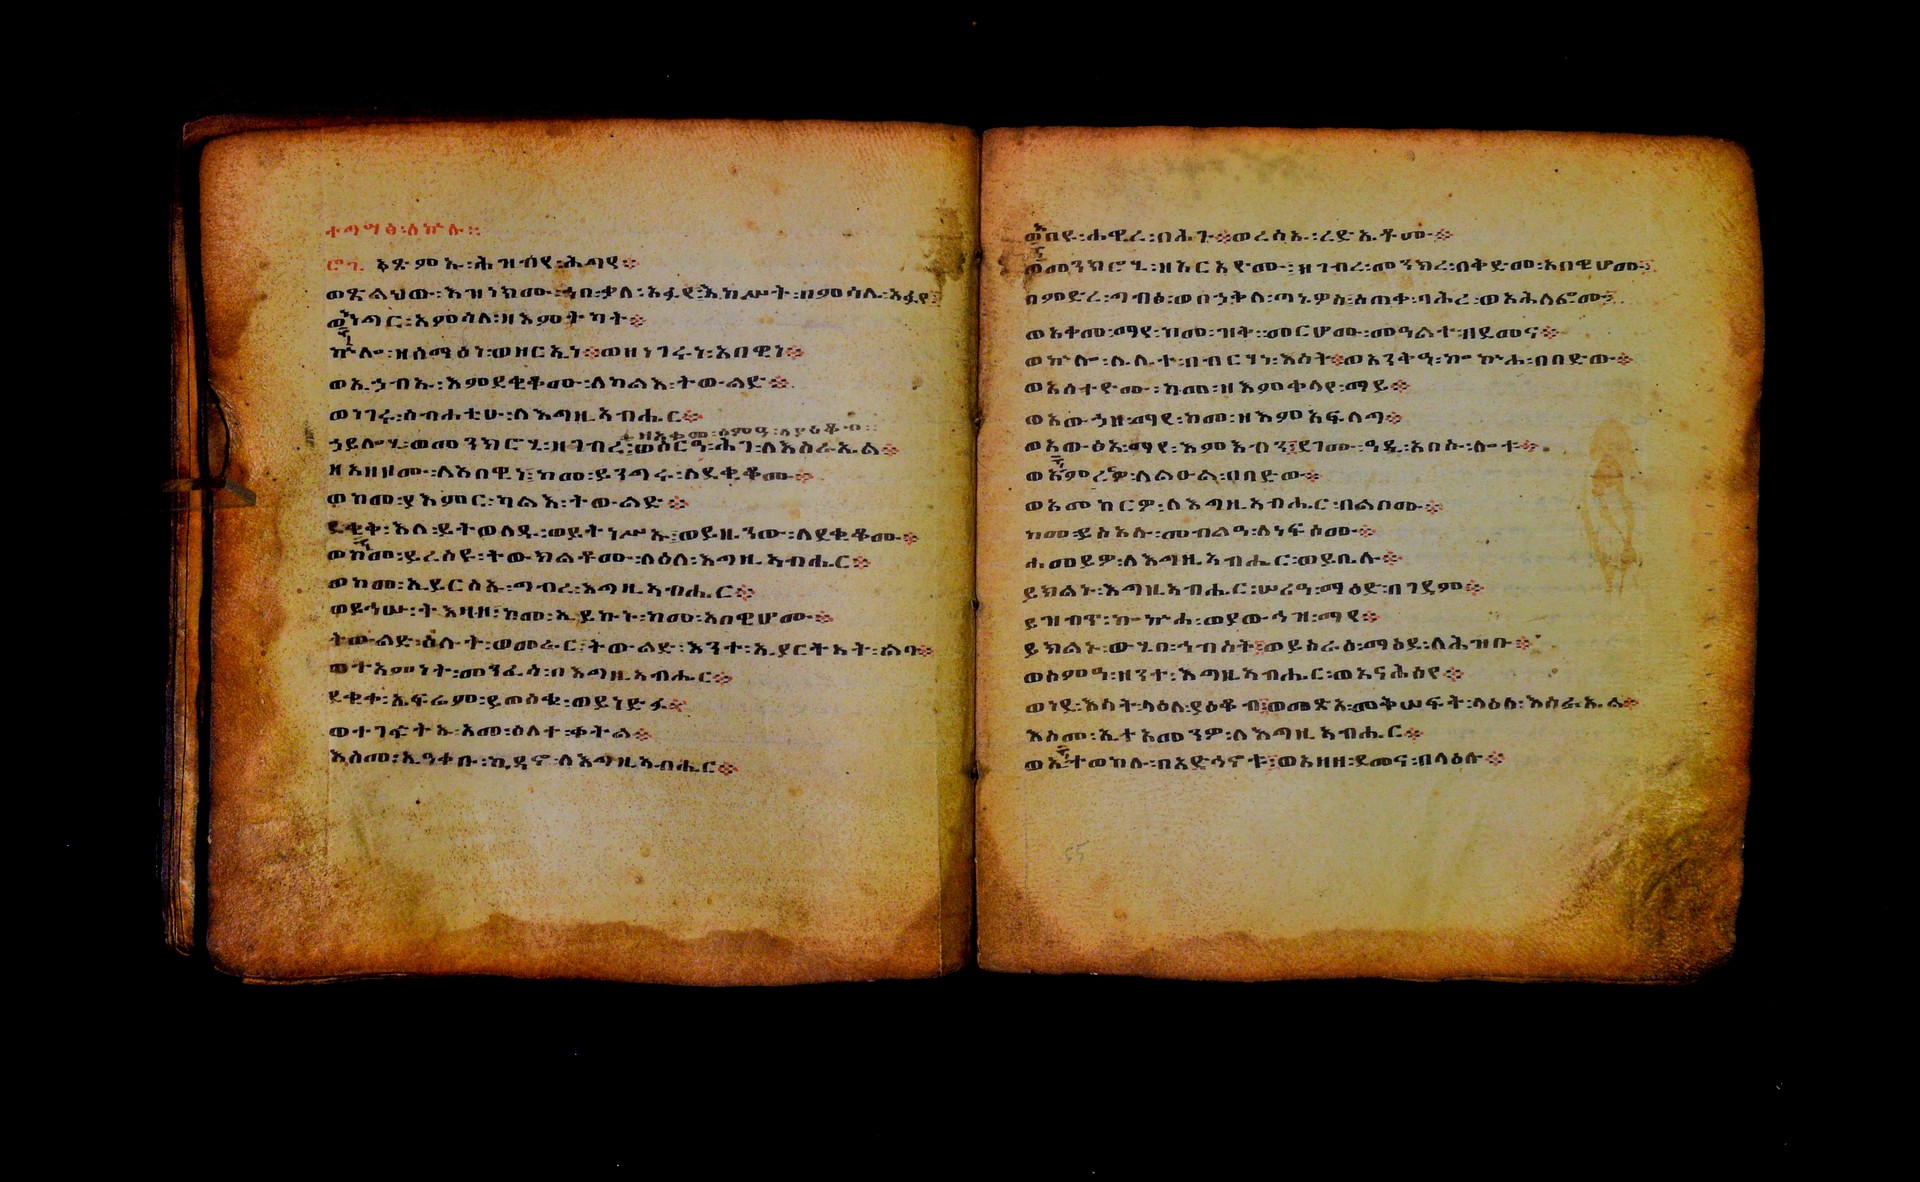 ለኵሉ።
አጽምኡ፡ሕዝብየ፡ሕግየ፨
ወጽልህው፡እዝነክሙ፡ኀበ፡ቃለ፡አፉየ፡እከሥት፡በምሳሌ፡አፉየ፨
ወእነግር፡አምሳለ፡ዘእምትካት፨
ኵሎ፡ዘሰማዕነ፡ወዘርኢነ፨ወዘነገሩነ፡አበዊነ፨
ወኢኀብኡ፡እምደቂቆሙ፡ለካልእ፡ትውልድ፨
ወነገሩ፡ስብሐቲሁ፡ለእግዚአብሔር፨
ዘአቀመ፡ስምዓ፡ለያዕቆብ።
ኀይሎሂ፡ወመንክሮሂ፡ዘገብረ፡ወሠርዓ፡ሕገ፡ለእስራኤል፨
ዘአዘዘሙ፡ለአበዊነ፡ከመ፡ይንግሩ፡ለደቂቆሙ፨
ወከመ፡ያእምር፡ካልእ፡ትውልድ፨
ደቂቅ፡እለ፡ይትወለዱ፡ወይትነሥኡ፡ወይዜንው፡ለደቂቆሙ፨
ወከመ፡ይረስዩ፡ትውክልቶሙ፡ላዕለ፡እግዚአብሔር፨
ወከመ፡ኢይርስኡ፡ግብረ፡እግዚአብሔር፨
ወይኅሡ፡ትእዛዘ፡ከመ፡ኢይኩኑ፡ከመ፡አበዊሆሙ፨
ትውልድ፡ዕሉት፡ወመራር፡ትውልድ፡እንተ፡ኢያርትዐት፡ልባ፨
ወተአምነት፡መንፈሳ፡በእግዚአብሔር፨
ደቂቀ፡ኤፍሬም፡ይወስቁ፡ወይነድፉ፨
ወተገፍትኡ፡አመ፡ዕለተ፡ቀትል፨
እስመ፡ኢዓቀቡ፡ኪዳኖ፡ለእግዚአብሔር፨
ወአበዩ፡ሐዊረ፡በሕጉ፨ወረስኡ፡ረድኤቶሙ፨
ወመንክሮሂ፡ዘአርአዮሙ፡ዘገብረ፡መንክረ፡በቅድመ፡አበዊሆሙ፨
በምድረ፡ግብፅ፡ወበኀቅለ፡ጣኔዎስ፡ሰጠቀ፡ባሕረ፡ወአሕለፎሙ፨
ወአቀመ፡ማየ፡ከመ፡ዝቅ፡መርሆሙ፡መዓልተ፡በደመና፨
ወኵሎ፡ሌሊተ፡በብርሃነ፡እሳት፨ወአንቅዓ፡ኰኵሐ፡በበድው፨
ወአስተዮሙ፡ከመ፡ዘእምቀላየ፡ማይ፨
ወአውኀዘ፡ማየ፡ከመ፡ዘእምአፍላግ፨
ወአውፅአ፡ማየ፡እምእብን፡ደገሙ፡ዓዲ፡አበሱ፡ሎተ፨
ወአምረርዎ፡ለልዑል፡በበድው፨
ወአመከርዎ፡ለእግዚአብሔር፡በልቦሙ፨
ከመ፡ይስአሉ፡መብልዓ፡ለነፍሶሙ፨
ሐመይዎ፡ለእግዚአብሔር፡ወይቤሉ፨
ይክልኑ፡እግዚአብሔር፡ሠሪዓ፡ማዕድ፡በገዳም፨
ይዝብጥ፡ኰኵሐ፡ወያውኅዝ፡ማየ፨
ይክልኑ፡ውሂበ፡ኅብስት፡ወይስራዕ፡ማዕደ፡ለሕዝቡ፨
ወሰምዓ፡ዘንተ፡እግዚአብሔር፡ወአናሕሰየ፨
ወነደ፡እሳት፡ላዕለ፡ያዕቆብ፡ወመጽአ፡መቅሠፍት፡ላዕለ፡እስራኤል፨
እስመ፡ኢተአመንዎ፡ለእግዚአብሔር፨
ወኢተወከሉ፡በአድኅኖቱ፡ወአዘዘ፡ደመና፡በላዕሉ፨
65